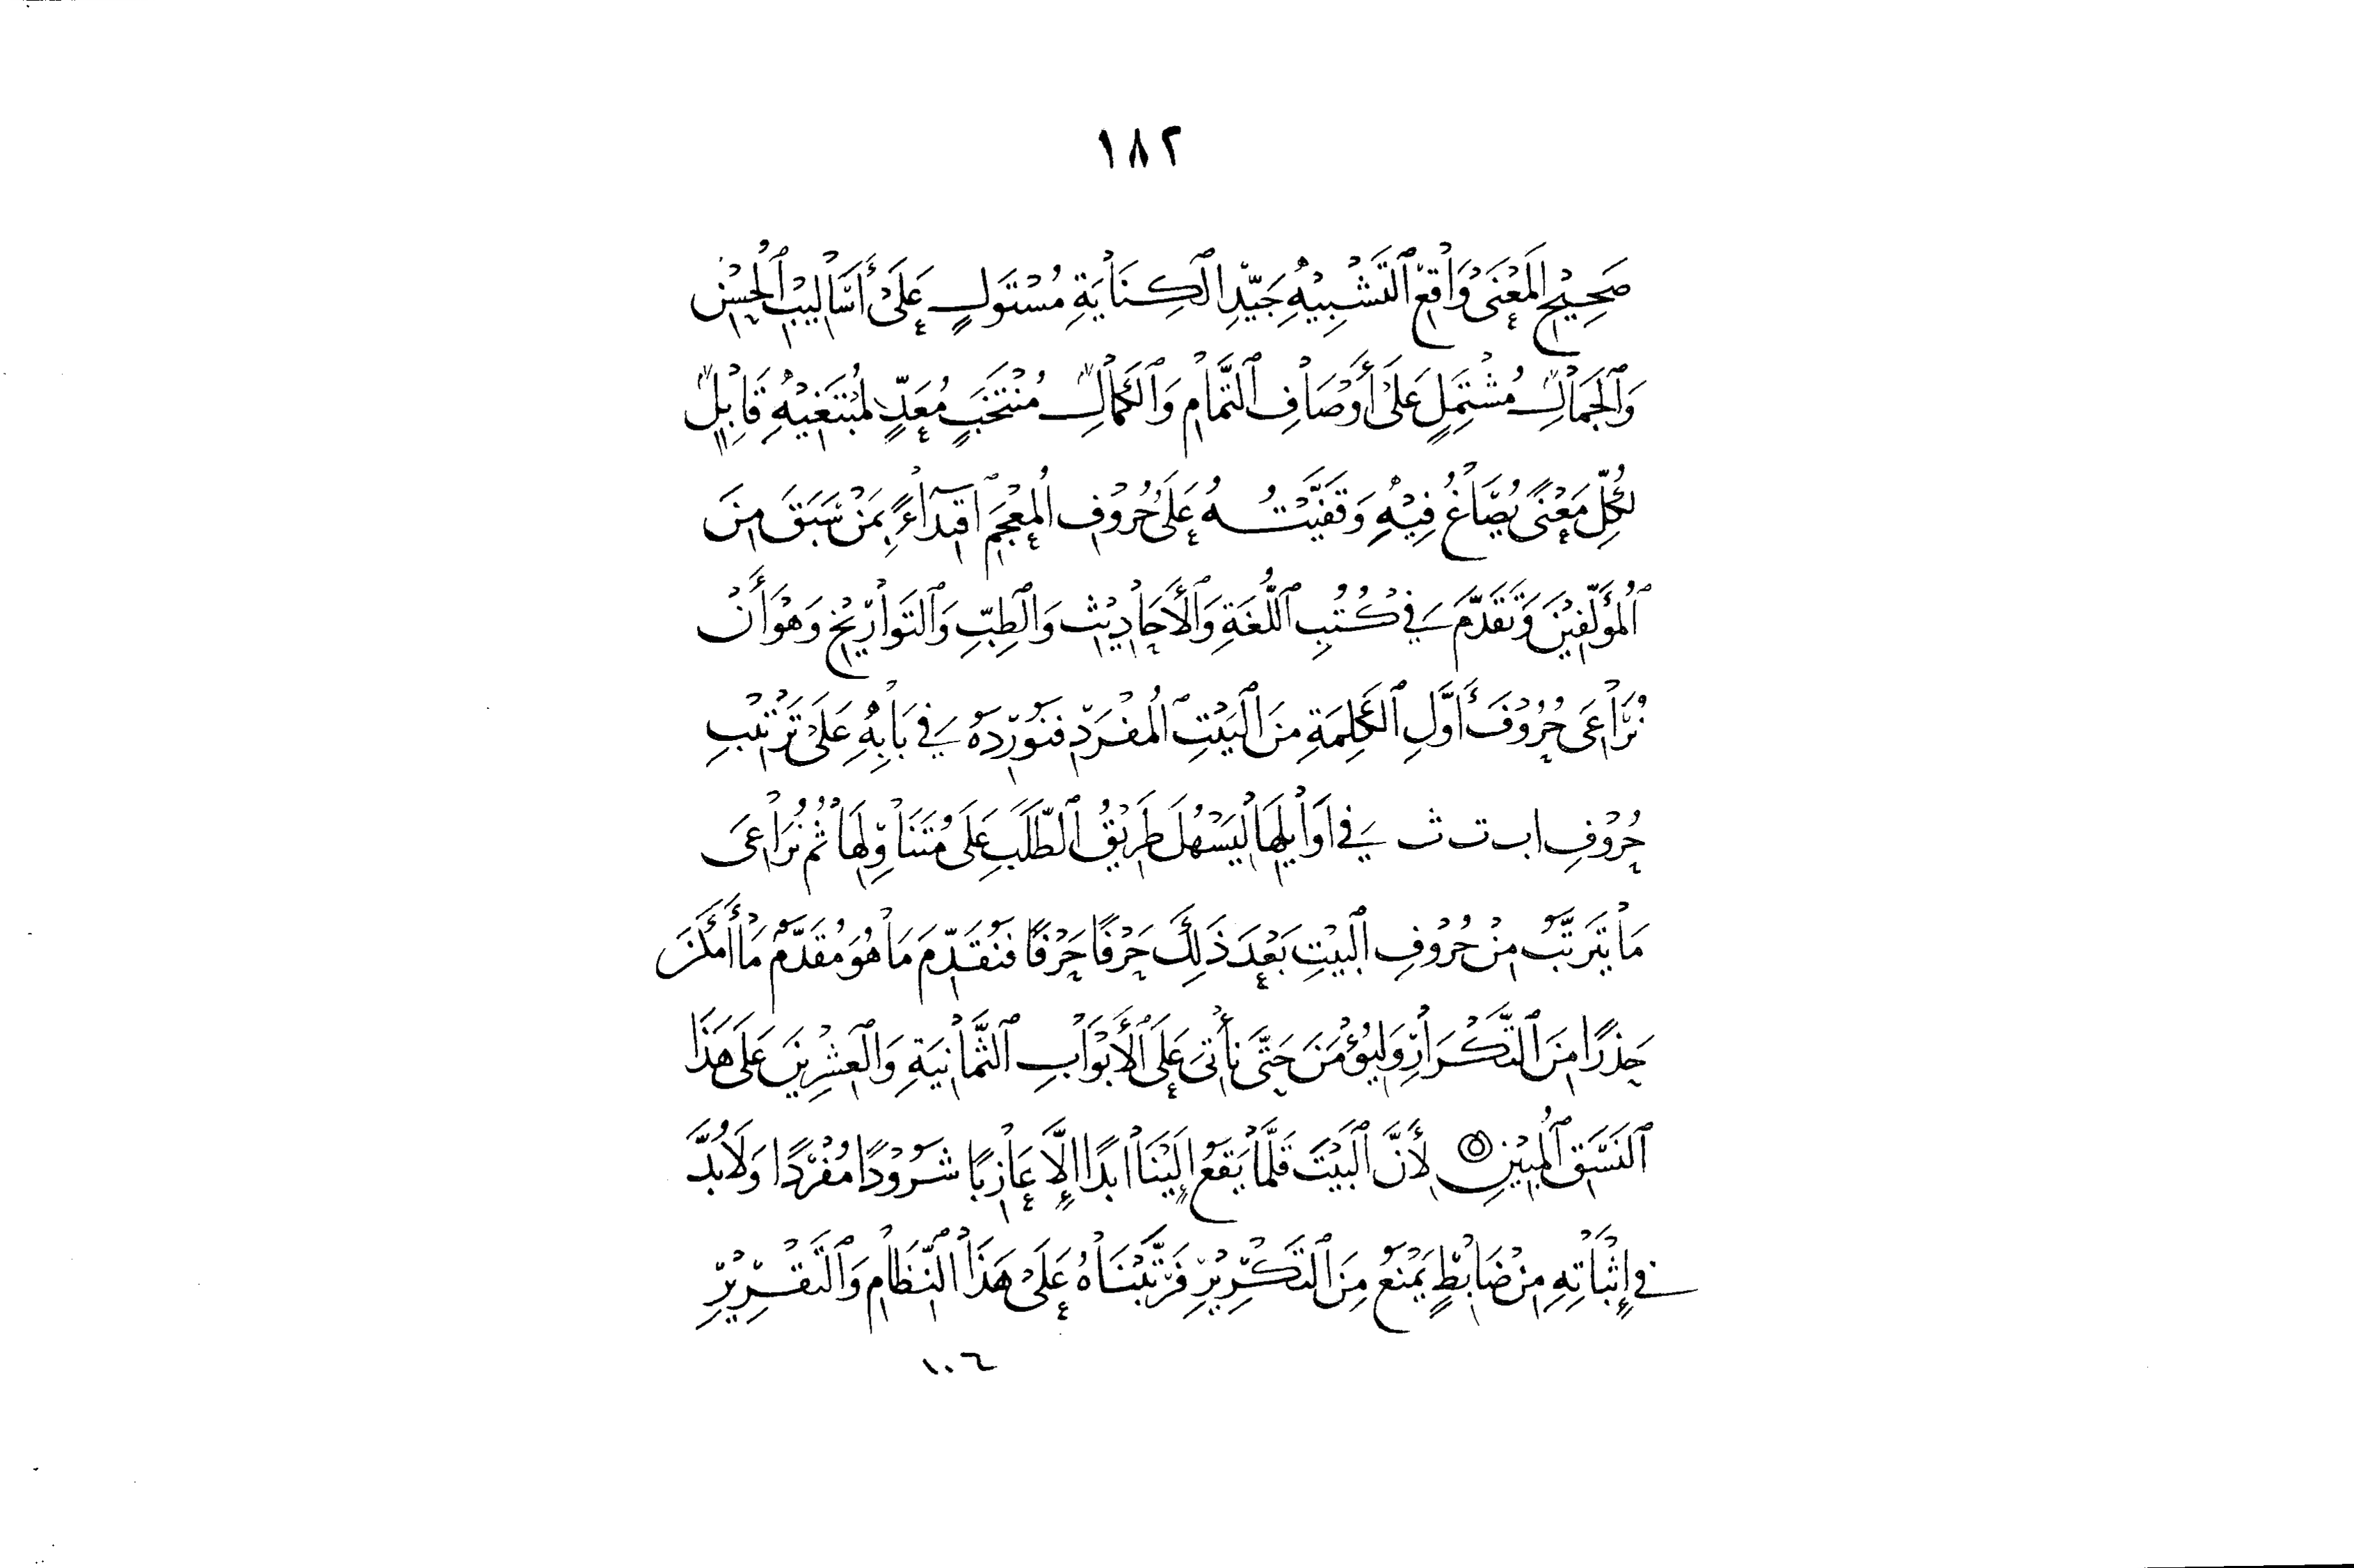 ١٨٢
صَحِيْحِ المَعْنَى وَاقِعِ ٱلتَّشْبِيْهِ جَيِّدِ الكِنَايَةِ مُسْتَوْلٍ عَلَى أَسَالِيْبِ ٱلحُسْنِ
وَٱلجَمَالِ مُشْتَمِلٍ عَلَى أَوْصَافِ ٱلتَّمَامِ وَٱلكَمَالِ مُنْتَخَبٍ مُعَدٍّ لمُبْتَغِيْهِ قَابِلٍ
لكُلِّ مَعْنًى يُصَاغُ فِيْهِ وَقَفَّيْتُهُ عَلَى حُرُوْفِ المُعْجَمِ اقتِدَاءً بِمَنْ سَبَقَ مِنَ
ٱلمُؤَلِّفِيْنَ وَتَقَدَّمَ فِي كُتُبِ ٱللُّغَةِ وَٱلأَحَادِيْثِ وَٱلطِبِّ وَٱلتَوَارِيْخِ وَهُوَ أَنْ
نُرَاعَى حُرُوْفَ أَوَّلِ ٱلكَلِمَةِ مِنَ البَيْتِ ٱلمُفْرَدِ فَنُوْرِدَهُ فِي بَابِهِ عَلَى تَرْتِيْبِ
حُرُوْفِ اب ت ث فِي أَوَايِلِهَا لِيَسْهُلَ طَرِيْقُ ٱلطَّلَبِ عَلَى مُتَنَاوِلِهَا ثُمَّ نُرَاعَى
مَا يَتَرَتَّبُ مِنْ حُرُوْفِ البَيْتِ بَعْدَ ذَلِكَ حَرْفًا حَرْفًا فَنُقَدِّمَ مَا هُوَ مُقَدَّمٌ مَا أَمْكَنَ
حَذرًا مِنَ ٱلتَّكْرَارِ وَلِيُؤْمَنَ حَتَّى نَأْتِى عَلَى ٱلأَبْوَابِ ٱلثَّمَانِيَةِ وَالعِشْرِيْنَ عَلَى هَذَا
ٱلنَسَقِ ٱلمُبِيْنِ ۝ لأَنَّ ٱلبَيْتَ قَلَّمَا يَقَعُ إِلَيْنَا ابَدًا إِلَّا عَازِبًا شَرُوْدًا مُفْرَدًا وَلَابُدَّ
فِي إِثْبَاتِهِ مِنْ ضَابِطٍ يَمْنَعُ مِنَ ٱلتَكْرِيْرِ فَرَتَّبْنَاهُ عَلَى هَذَا ٱلنِّظَامِ وَٱلتَقْرِيْرِ
١٠٠٦